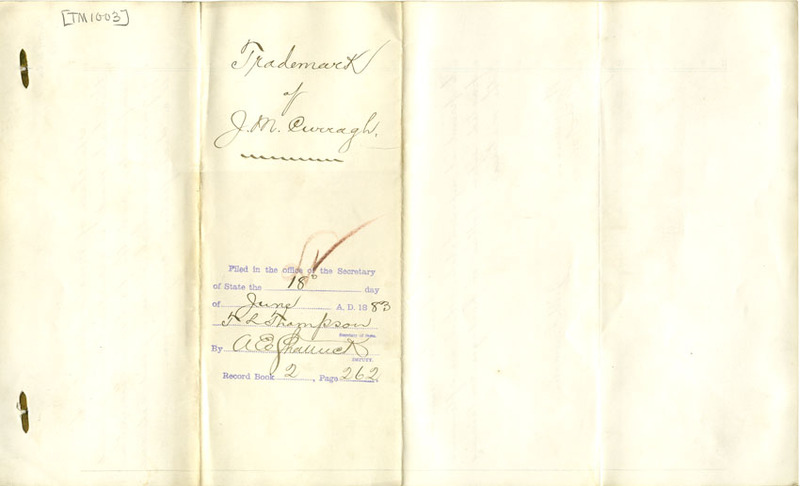 [TM1003]
Trademark
of
J. M. Curragh.
Filed in the office of the Secretary
of State the 18 day
of June A. D. 1883
T L Thompson
Secretary of State.
By A E Shattuck
DEPUTY.
Record Book 2, Page 262.